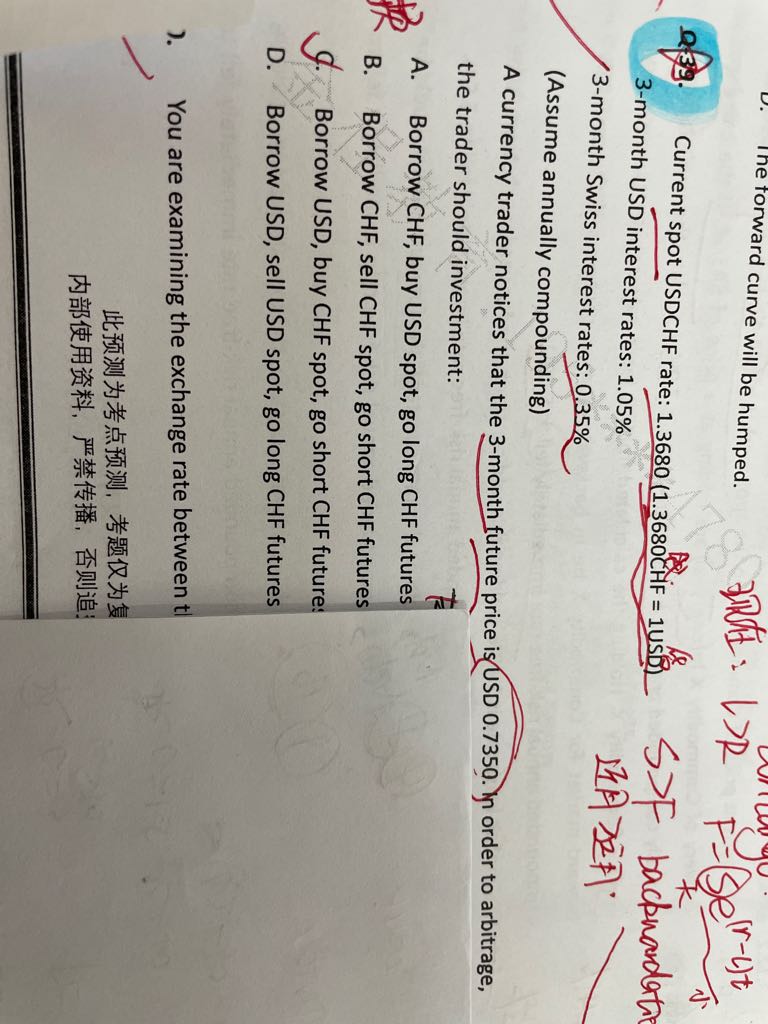 D. The forward curve will be humped.
Q-39. Current spot USDCHF rate: 1.3680 (1.3680CHF = 1USD)
3-month USD interest rates: 1.05%
3-month Swiss interest rates: 0.35%
(Assume annually compounding)
A currency trader notices that the 3-month future price is USD 0.7350. In order to arbitrage,
the trader should investment:
A. Borrow CHF, buy USD spot, go long CHF futures
B. Borrow CHF, sell CHF spot, go short CHF futures
C. Borrow USD, buy CHF spot, go short CHF futures
D. Borrow USD, sell USD spot, go long CHF futures
). You are examining the exchange rate between
此预测为考点预测，考题仅为复
内部使用资料，严禁传播，否则追
l>R F=Se(r-l)t
S>F backwardatio
近月>远月.